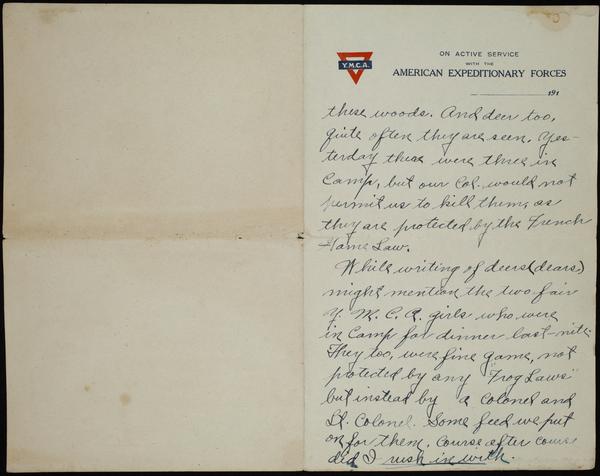 ON ACTIVE SERVICE
WITH THE
Y.M.C.A. AMERICAN EXPEDITIONARY FORCES
191
these woods. And deer too,
quite often they are seen. Yes-
terday there were three in
Camp, but our Col. would not
permit us to kill them, as
they are protected by the French
Game Law.
While writing of deers (dears)
might mention the two fair
Y. M. C. A. girls who were
in Camp for dinner last-nite.
They too, were fine game, not
protected by any "Frog Laws"
but instead by a Colonel and
Lt. Colonel. Some feed we put
on for them. Course after course
did I rush in with.